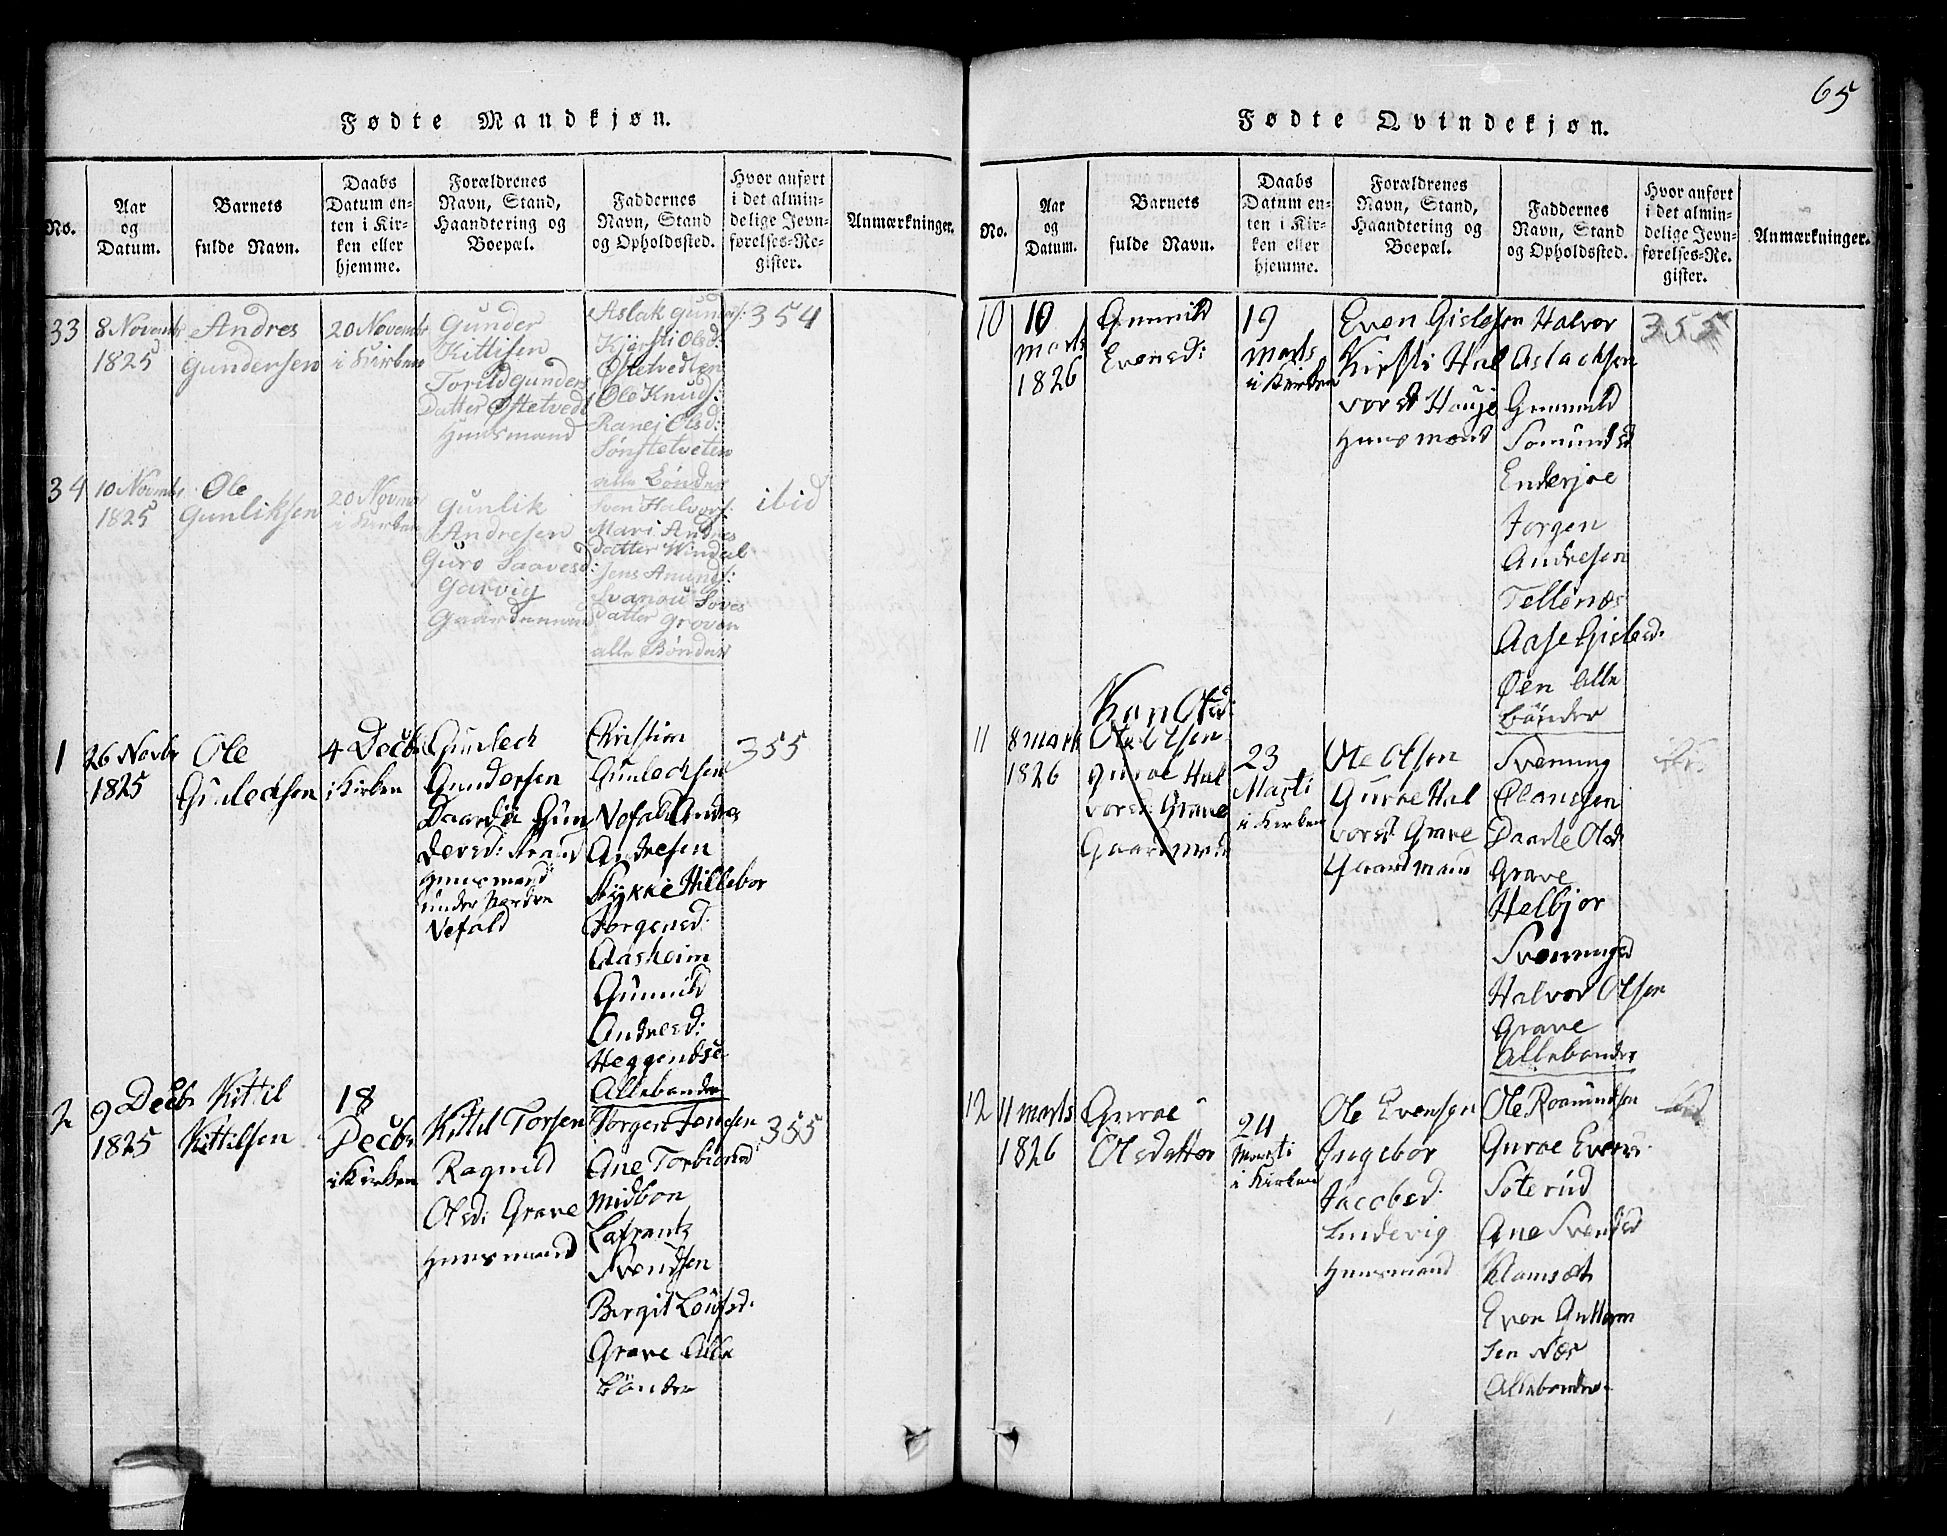 65
Fødte Mandkjøn.
No.
Aar
og
Datum.
Barnets
fulde Navn.
Daabs
Datum en-
ten i Kir-
ken eller
hjemme.
Forældrenes
Navn, Stand,
Haandtering og
Boepæl.
Faddernes
Navn, Stand
og Opholdssted.
Hvor anført
i det almin-
delige Jevn-
førelses-Re-
gister.
Anmærkninger.
33
8 Novembr
1825
Andres
Gundersen
20 Novembr
i Kirken
Gunder
Kittilsen
Torild gunders
Datter Østetvedt
Huusmand
Aslak gunders:
Kjersti Olsd:
Østetvedten
Ole Knuds:
Ranei Olsd:
Sønstetveten
alle Bønder
354
34
10 Novmbr
1825
Ole
Gunliksen
20 Novmbr
i Kirken
Gunlik
Andresen
Guro Saavesd:
Garvig
Gaardemand
Sven Halvors:
Mari Andres
datter Windal
Jens Amunds:
Svanou Soves
datter Groven
alle Bønder
ibid
1
26 Novbr
1825
Ole
Gunlechsen
4 Decbr
i Kirken
Gunlech
Gundersen
Daardie Gun
dersd: Strand
Huusmand
under Nordre
Nefald
Christian
Gunlechsen
Nefald Andres
Andresen
Bykkie Hillebor
Jorgensd:
Aasheim
Gunnild
Andresd:
Heggendse
Alle bønder
355
2
9 Decbr
1825
Kittil
Kittilsen
18
Decbr
i Kirken
Kittil Torsen
Ragnild
Olsd: Grave
Huusmand
Jorgen Jensen
Ane Torbiønsd
Midbøn
Lafrants
Svendsen
Bergit Loufsd:
Grave Alle
bönder
355
Fødte Qvindekjøn.
No.
Aar
og
Datum.
Barnets
fulde Navn.
Daabs
Datum en-
ten i Kir-
ken eller
hjemme.
Forældrenes
Navn, Stand,
Haandtering og
Boepæl.
Faddernes
Navn, Stand
og Opholdssted.
Hvor anført
i det almin-
delige Jevn-
førelses-Re-
gister.
Anmærkninger.
10
10
marts
1826
Gunnild
Evensd:
19
marts
i Kirken
Even Gislesen
Kirsti Hal
vorsd Hauje
Huusmand
Halvor
Aslachsen
Gunnild
Somunds d
Enderjoe
Jorgen
Andresen
Tellenæs
Aase Gislesd:
Øen Alle
bönder
355
11
8 mart
1826
Kari Olsd:
Ole Olsen
Guroe Hal
vorsd: Grave
Gaardmand
23
Marti
i Kirken
Ole Olsen
Guroe Hal
vorsd. Grave
Gaardmand
Svenung
Olansen
Daarte Olsd
Grave
Helbjor
Svenungsd
Halvor Olsen
Grave
Alle bønder
12
11 marts
1826
Guroe
Olsdatter
24
Marti
i Kirken
Ole Evensen
Ingebor
Jacobsd.
Lindevig
Huusmand
Ole Roamundsen
Guroe Evens
Soterud
Ane Svendsd
Klomsæt
Even Guttorm
sen Næs
Alle bønder
ibid